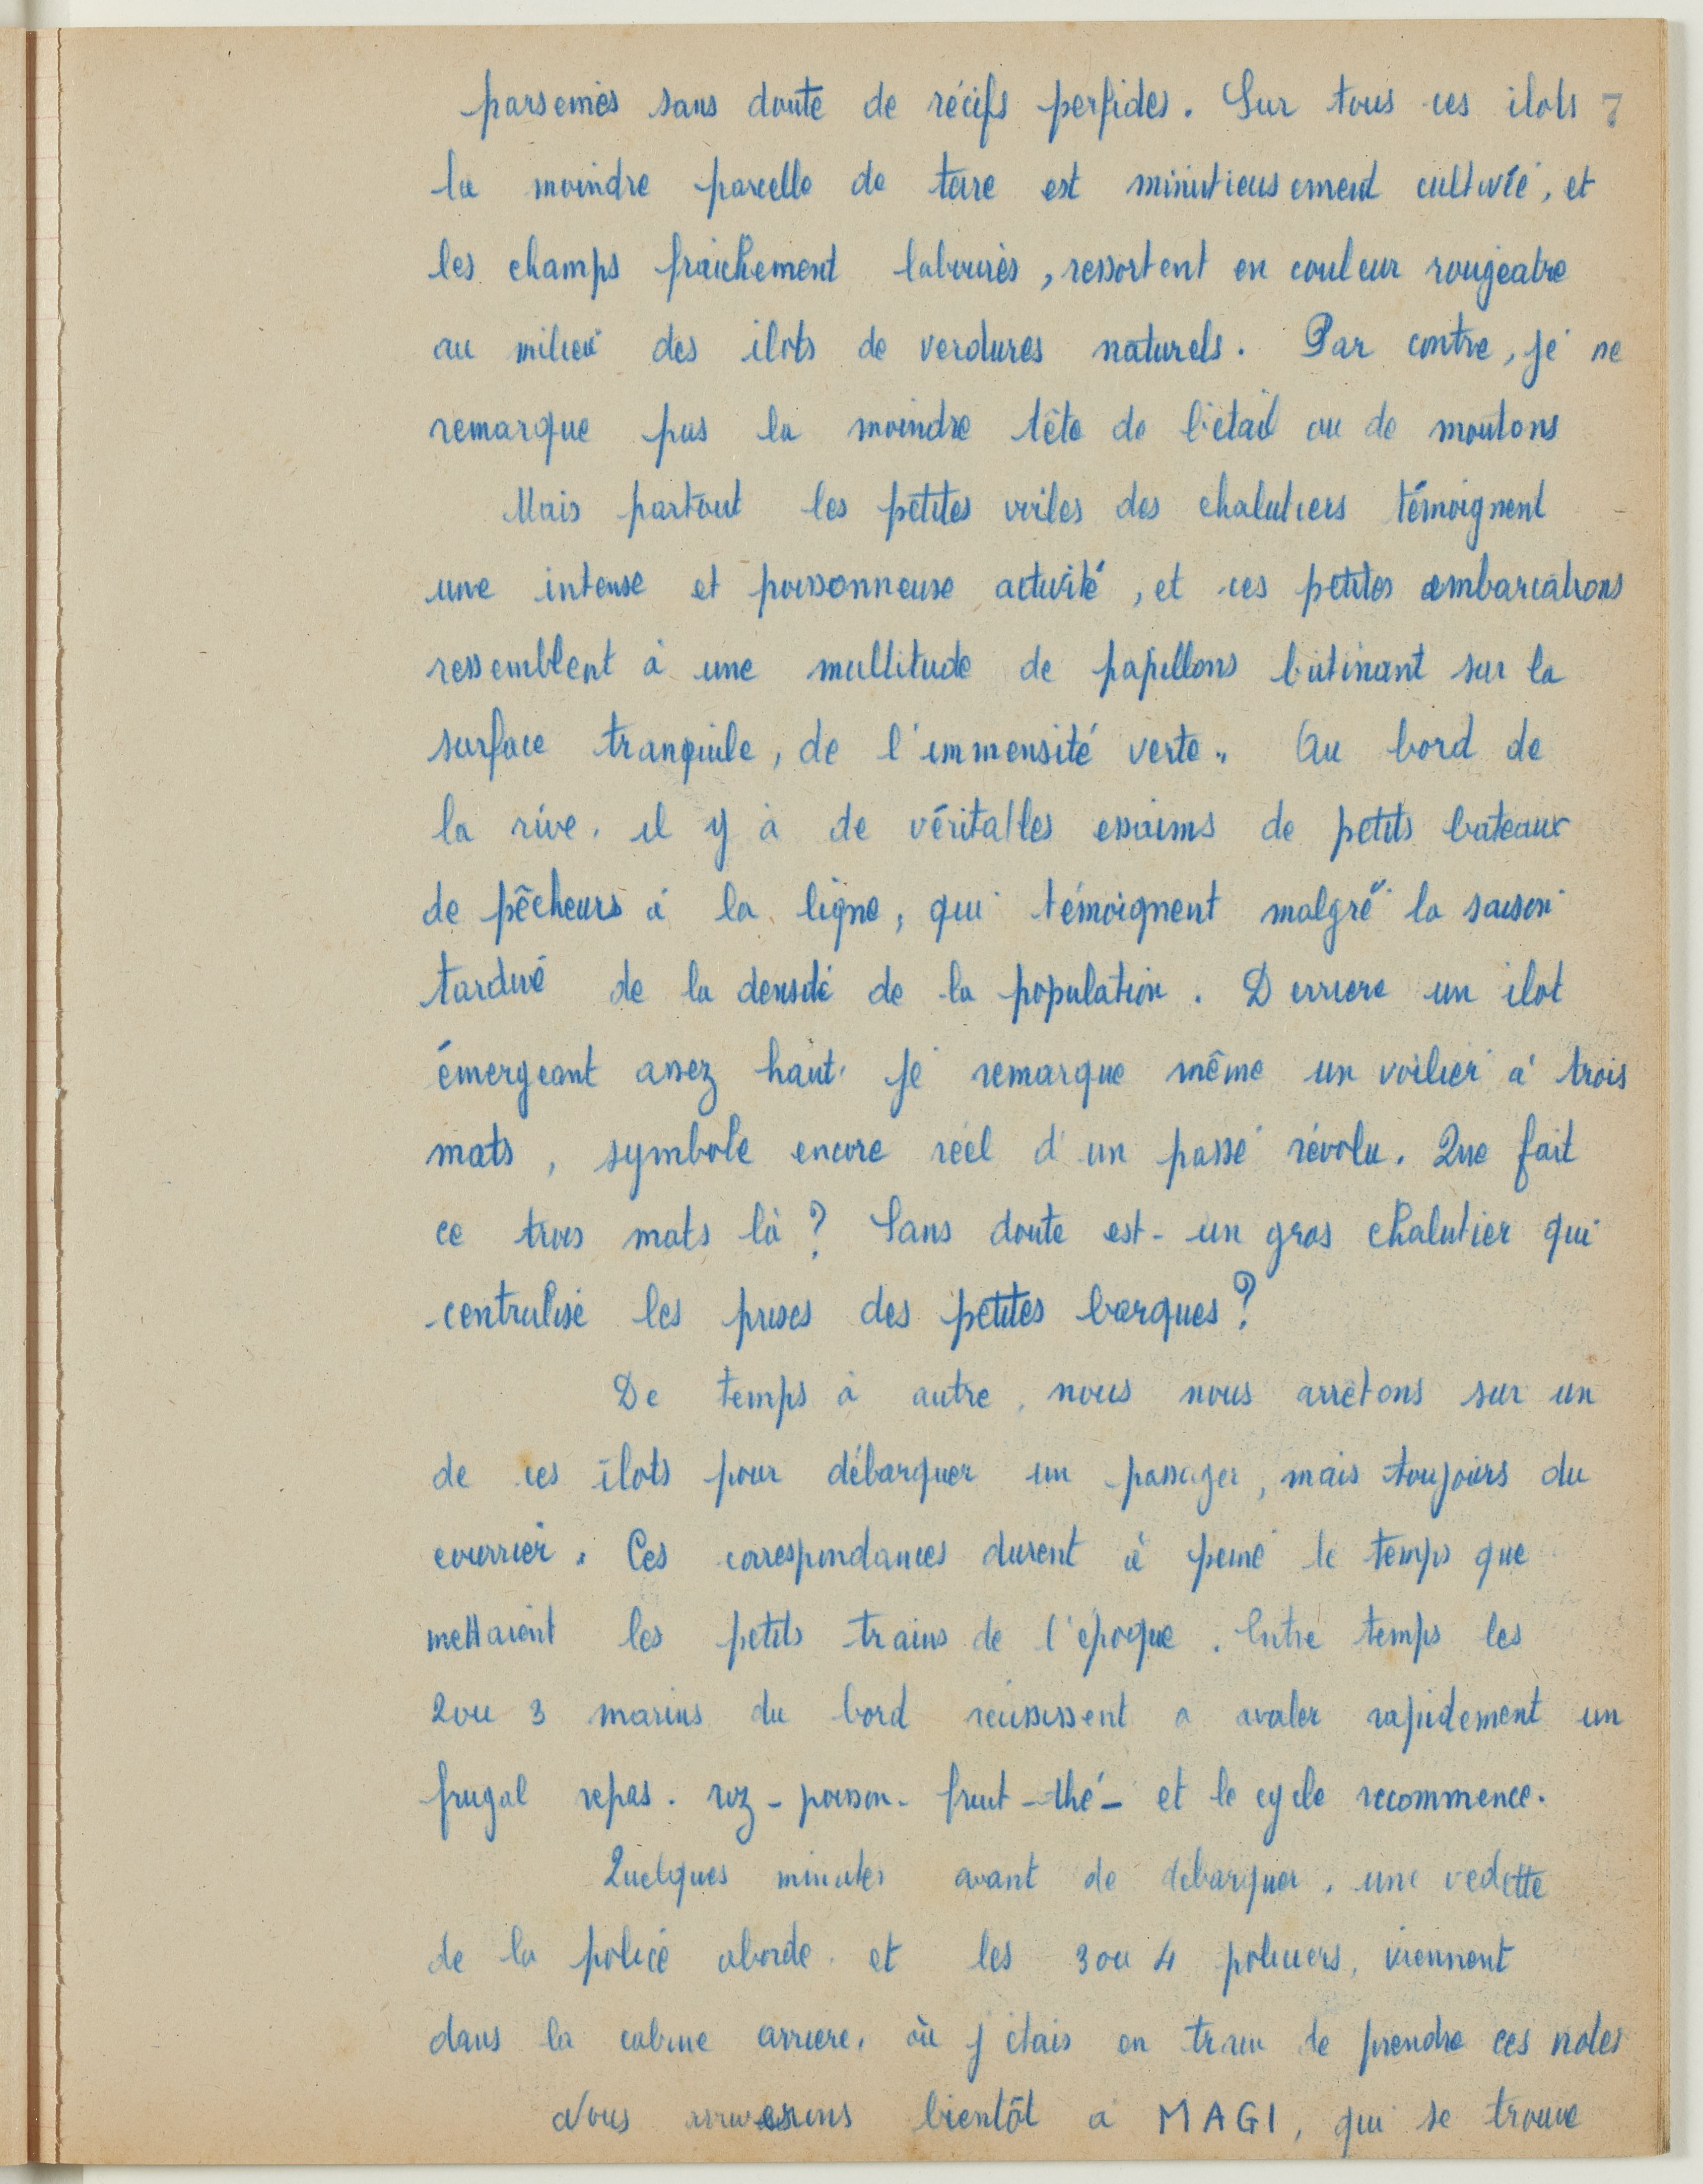 parsemés sans doute de récifs perfides. Sur tous ces ilots 7
la moindre parcelle de terre est minutieusement cultivée, et
les champs fraichement labourés, ressortent en couleur rougeatre
au milieu des ilots de verdures naturels. Par contre, je ne
remarque pas la moindre tête de bétail ou de moutons
Mais partout les petites voiles des chalutiers témoignent
une intense et poissonneuse activité, et ces petites embarcations
ressemblent à une multitude de papillons butinant sur la
surface tranquile, de l'immensité verte. Au bord de
la rive. il y à de véritables essaims de petits bateaux
de pêcheurs à la ligne, qui témoignent malgré la saison
tardive de la densité de la population. Derriere un ilot
émergeant assez haut. je remarque même un voilier à trois
mats, symbole encore réel d'un passé révolu. Que fait
ce trois mats là? Sans doute est-un gros chalutier qui
centralise les prises des petites barques?
De temps à autre, nous nous arrêtons sur un
de ces îlots pour débarquer un passager, mais toujours du
courrier. Ces correspondances durent à peine le temps que
mettaient les petits trains de l'époque. Entre temps les
2 ou 3 marins du bord réussissent a avaler rapidement un
frugal repas. riz - poisson - fruit - thé - et le cycle recommence.
Quelques minutes avant de débarquer, une vedette
de la police aborde. et les 3 ou 4 policiers, viennent
dans la cabine arriere, où j'étais en train de prendre ces notes
Nous bientôt a MAGI, qui se trouve